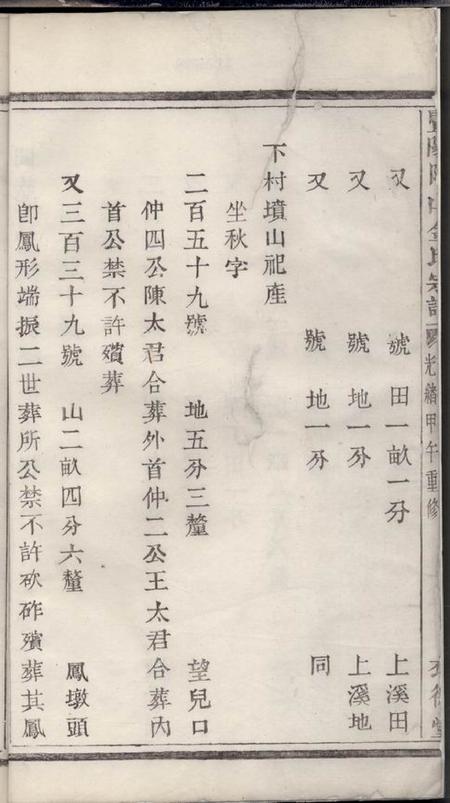 光緒甲午重修
又　號　田一畝一分　上溪田
又　號　地一分　上溪地
又　號　地一分　同
下村墳山祀產
坐秋字
二百五十九號　地五分三釐　望兒口
仲四公陳太君合葬外首仲二公王太君合葬內
首公禁不許殯葬
又三百三十九號　山二畝四分六釐　鳳墩頭
卽鳳形端振二世葬所公禁不許砍砟殯葬其鳳